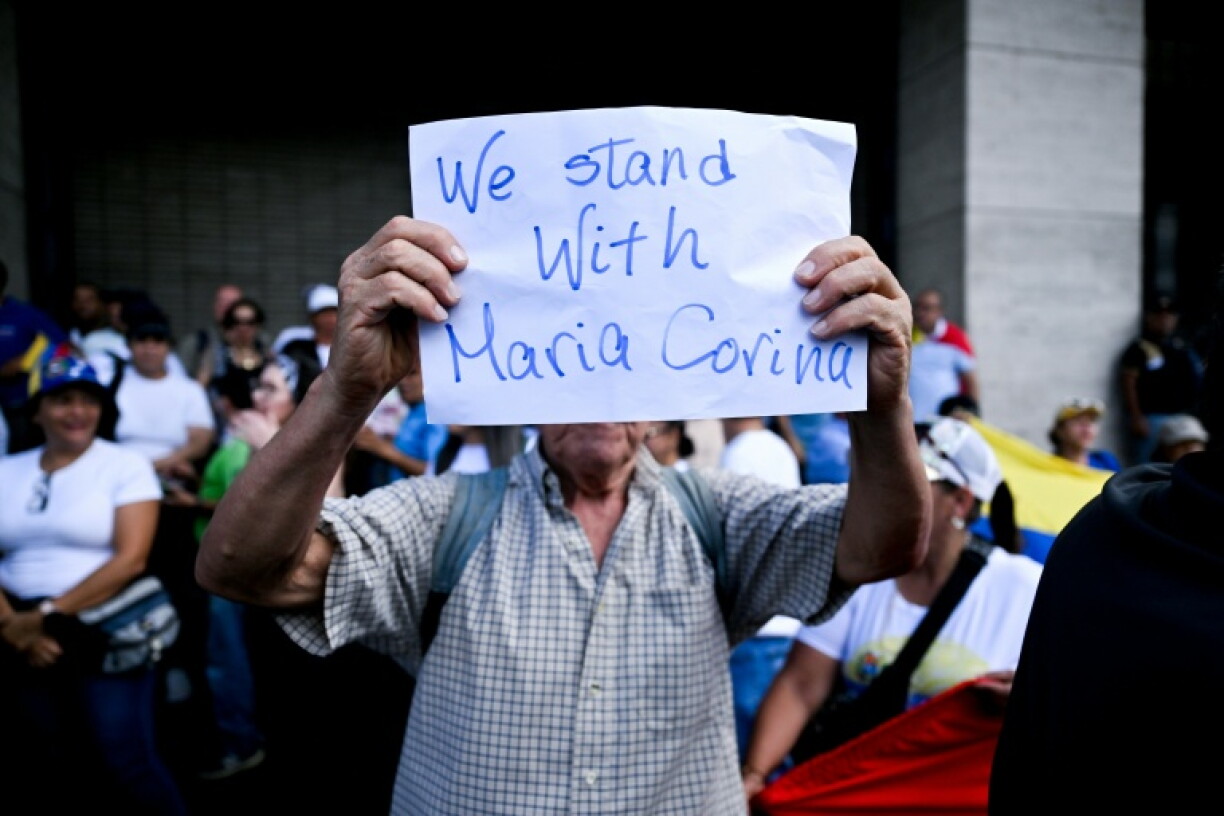 We stand
With
Maria Corina